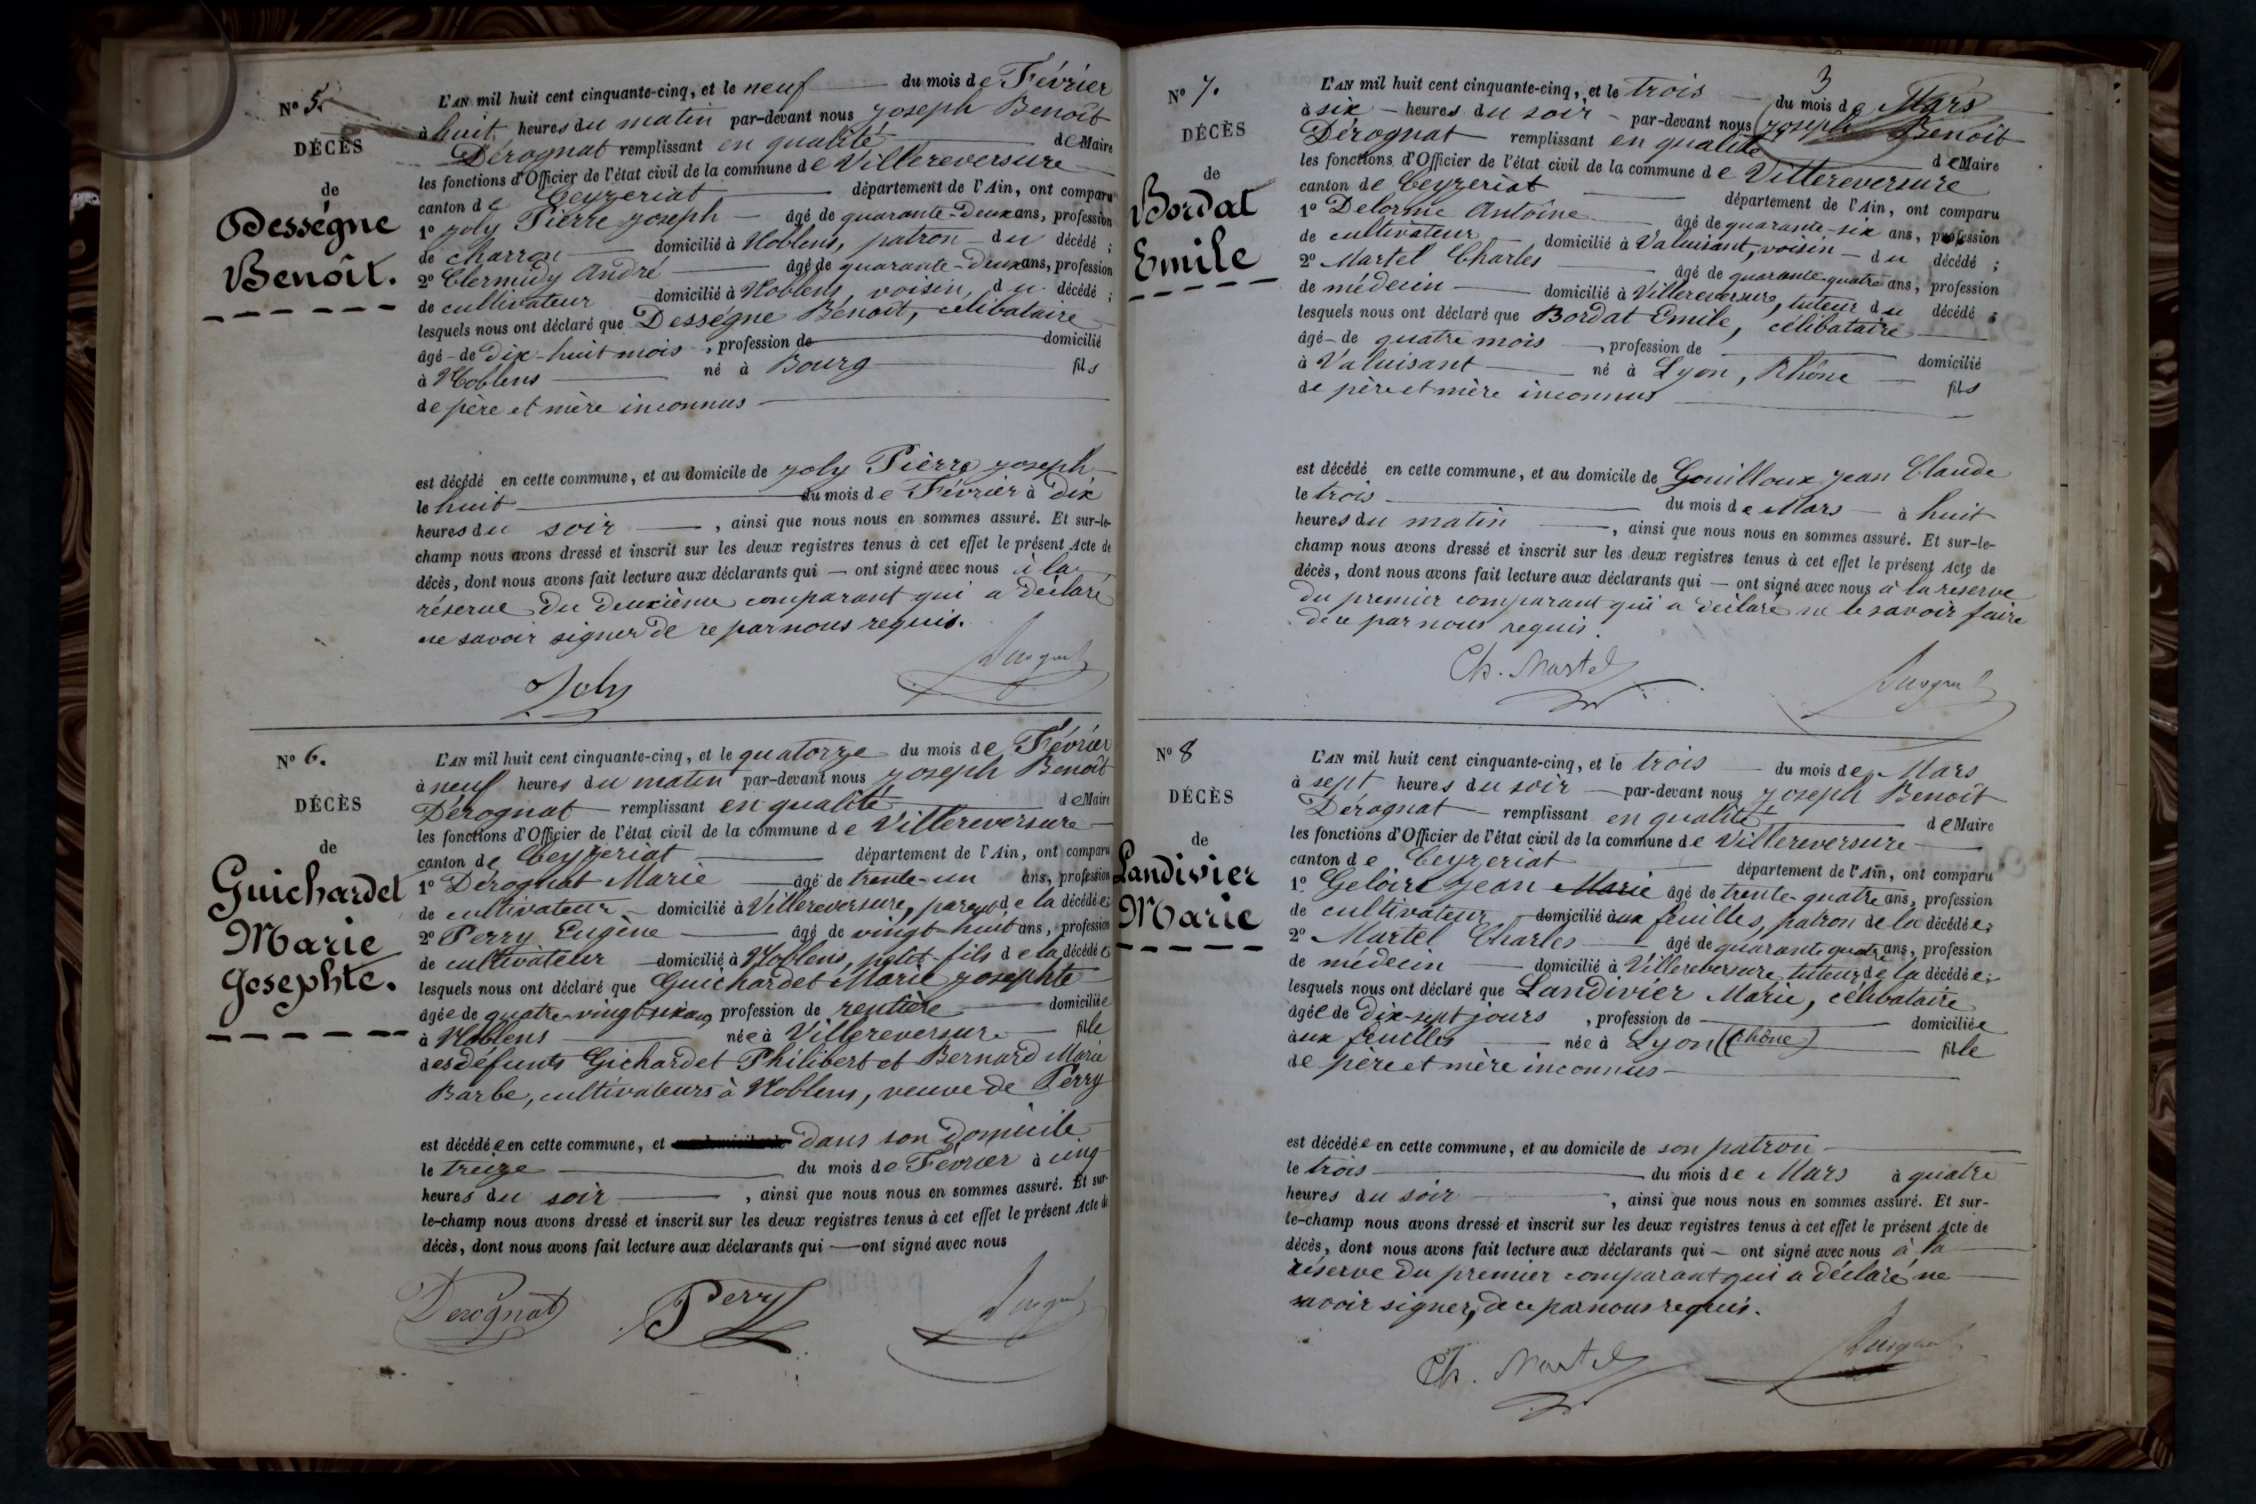 N° 5.
DÉCÈS
de
Désségne
Benoît.
L'AN mil huit cent cinquante-cinq, et le neuf du mois de Février
à huit heures du matin par-devant nous Joseph Benoît
Dérognat remplissant en qualité de Maire
les fonctions d'Officier de l'état civil de la commune de Villereversure
canton de Ceyzeriat département de l'Ain, ont comparu
1° Joly Pierre Joseph âgé de quarante-deux ans, profession
de charron domicilié à Noblens, patron du décédé ;
2° Clermidy André âgé de quarante-deux ans, profession
de cultivateur domicilié à Noblens, voisin, du décédé ;
lesquels nous ont déclaré que Désségne Bénoît, célibataire
âgé de dix-huit mois, profession de domicilié
à Noblens né à Bourg fils
de père et mère inconnus
est décédé en cette commune, et au domicile de Joly Pierre Joseph
le huit du mois de Février à dix
heures du soir, ainsi que nous nous en sommes assuré. Et sur-le-
champ nous avons dressé et inscrit sur les deux registres tenus à cet effet le présent Acte de
décès, dont nous avons fait lecture aux déclarants qui — ont signé avec nous à la
réserve du deuxième comparant qui a déclaré
ne savoir signer de ce par nous requis.
Joly
N° 6.
DÉCÈS
de
Guichardet
Marie
Josephte.
L'AN mil huit cent cinquante-cinq, et le quatorze du mois de Février
à neuf heures du matin par-devant nous Joseph Benoît
Dérognat remplissant en qualité de Maire
les fonctions d'Officier de l'état civil de la commune de Villereversure
canton de Ceyzeriat département de l'Ain, ont comparu
1° Dérognat Marie âgé de trente-un ans, profession
de cultivateur domicilié à Villereversure, parent de la décédée
2° Perry Eugène âgé de vingt-huit ans, profession
de cultivateur domicilié à Noblens, petit-fils de la décédée
lesquels nous ont déclaré que Guichardet Marie Josephte
âgée de quatre-vingt-six ans profession de rentière domiciliée
à Noblens née à Villereversure fille
des défunts Gichardet Philibert et Bernard Marie
Barbe, cultivateurs à Noblens, veuve de Perry
est décédée en cette commune, et dans son domicile
le treize du mois de Février à cinq
heures du soir, ainsi que nous nous en sommes assuré. Et sur-
le-champ nous avons dressé et inscrit sur les deux registres tenus à cet effet le présent Acte de
décès, dont nous avons fait lecture aux déclarants qui — ont signé avec nous
Derognat Perry
3
N° 7.
DÉCÈS
de
Bordat
Emile
L'AN mil huit cent cinquante-cinq, et le trois du mois de Mars
à six heures du soir par-devant nous Joseph Benoît
Dérognat remplissant en qualité de Maire
les fonctions d'Officier de l'état civil de la commune de Villereversure
canton de Ceyzeriat département de l'Ain, ont comparu
1° Delorme Antoine âgé de quarante-six ans, profession
de cultivateur domicilié à Valuisant, voisin du décédé ;
2° Martel Charles âgé de quarante-quatre ans, profession
de médecin domicilié à Villereversure, tuteur du décédé ;
lesquels nous ont déclaré que Bordat Emile, célibataire
âgé de quatre mois, profession de domicilié
à Valuisant né à Lyon, Rhône fils
de père et mère inconnus
est décédé en cette commune, et au domicile de Gouilloux Jean Claude
le trois du mois de Mars à huit
heures du matin, ainsi que nous nous en sommes assuré. Et sur-le-
champ nous avons dressé et inscrit sur les deux registres tenus à cet effet le présent Acte de
décès, dont nous avons fait lecture aux déclarants qui — ont signé avec nous à la réserve
du premier comparant qui a déclaré ne le savoir faire
de ce par nous requis.
Ch. Martel
N° 8
DÉCÈS
de
Landivier
Marie
L'AN mil huit cent cinquante-cinq, et le trois du mois de Mars
à sept heures du soir par-devant nous Joseph Benoît
Dérognat remplissant en qualité de Maire
les fonctions d'Officier de l'état civil de la commune de Villereversure
canton de Ceyzeriat département de l'Ain, ont comparu
1° Geloire Jean Marie âgé de trente-quatre ans, profession
de cultivateur domicilié aux feuilles, patron de la décédée;
2° Martel Charles âgé de quarante quatre ans, profession
de médecin domicilié à Villereversure, tuteur de la décédée;
lesquels nous ont déclaré que Landivier Marie, célibataire
âgée de dix-sept jours, profession de domiciliée
aux feuilles née à Lyon (Rhône) fille
de père et mère inconnus
est décédée en cette commune, et au domicile de son patron
le trois du mois de Mars à quatre
heures du soir, ainsi que nous nous en sommes assuré. Et sur-
le-champ nous avons dressé et inscrit sur les deux registres tenus à cet effet le présent Acte de
décès, dont nous avons fait lecture aux déclarants qui — ont signé avec nous à la
réserve du premier comparant qui a déclaré ne
savoir signer, de ce par nous requis.
Ch. Martel